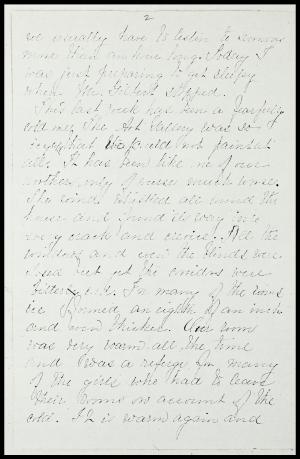 2
we usually have to listen to sermons
more than an hour long. Today I
was just preparing to get sleepy
when Mr. Gilbert stopped.
This last week has been a
cold one. The Art Gallery was so
cold that we could not paint at
all. It has been like one of our
northers, only of course much worse.
The wind whistled all around the
house and found its way into
every crack and crevice. All the
windows and even the blinds were
closed but yet the corridors were
bitterly cold. In many of the rooms
ice formed an eighth of an inch
and even thicker. Our room
was very warm all the time
and was a refuge for many
of the girls who had to leave
their rooms on account of the
cold. It is warm again and